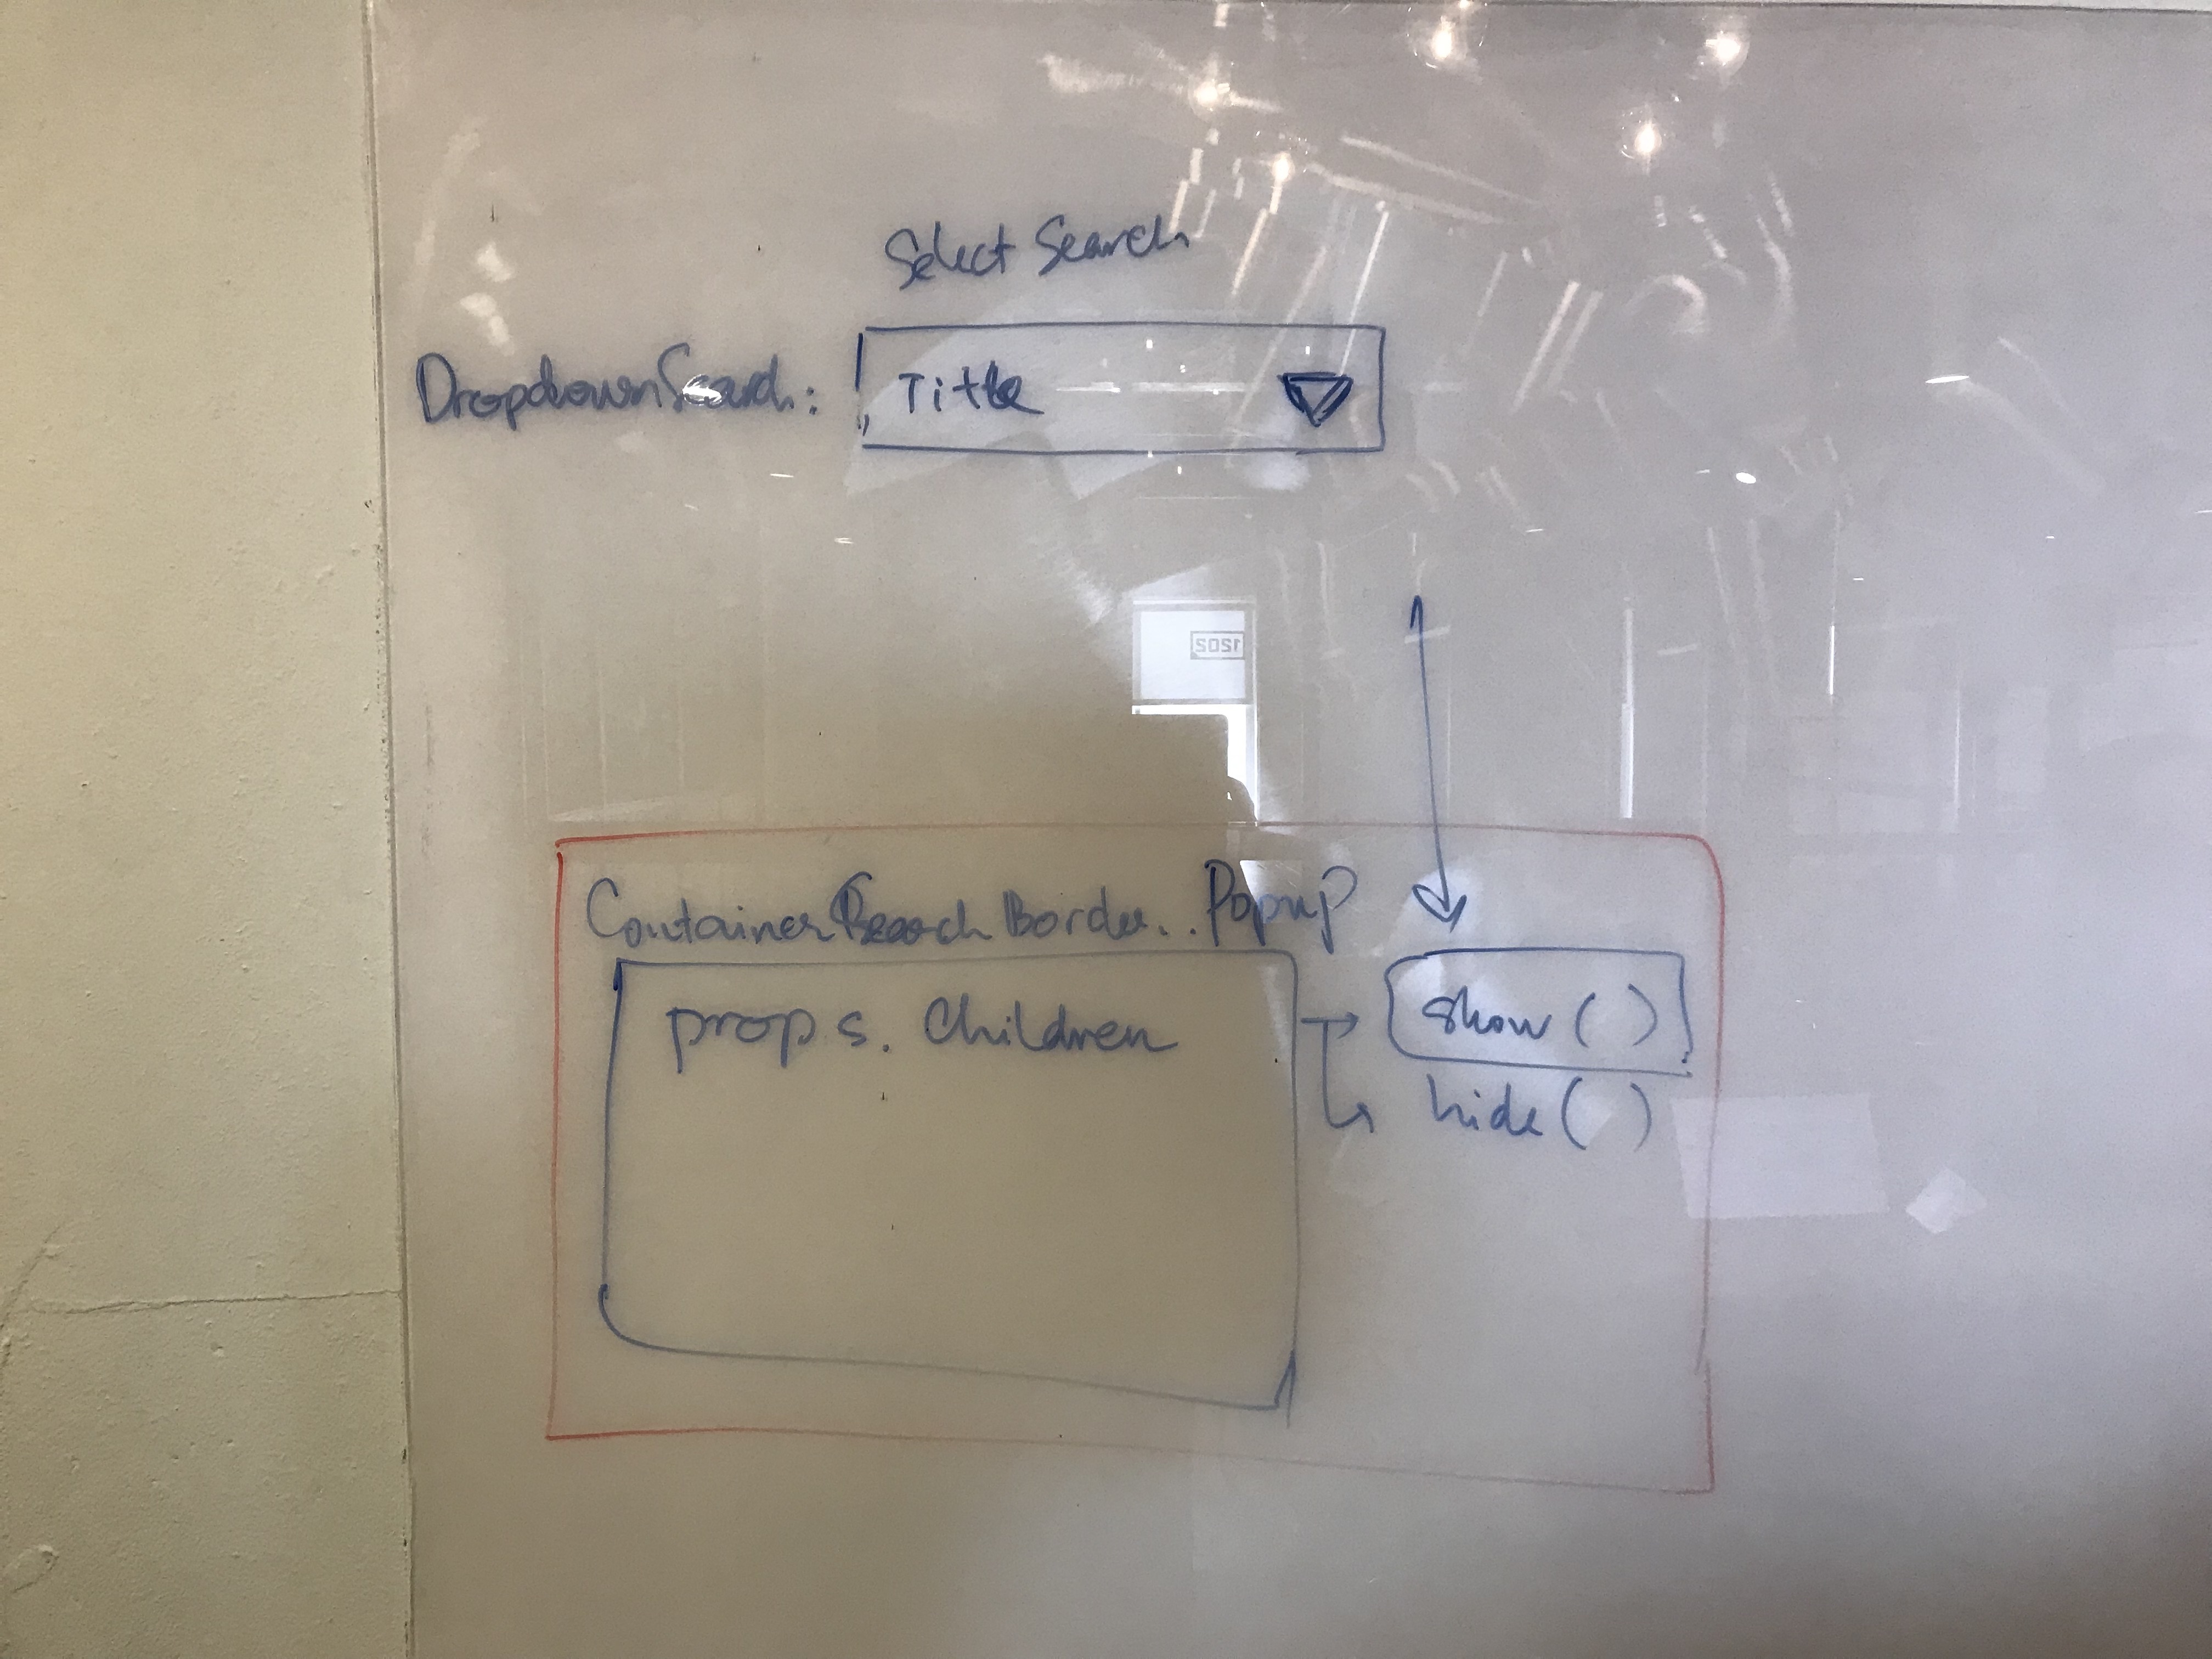 Select Search
DropdownSearch:
Title
Container Search Border.. Popup
props. Children
show ( )
hide ( )